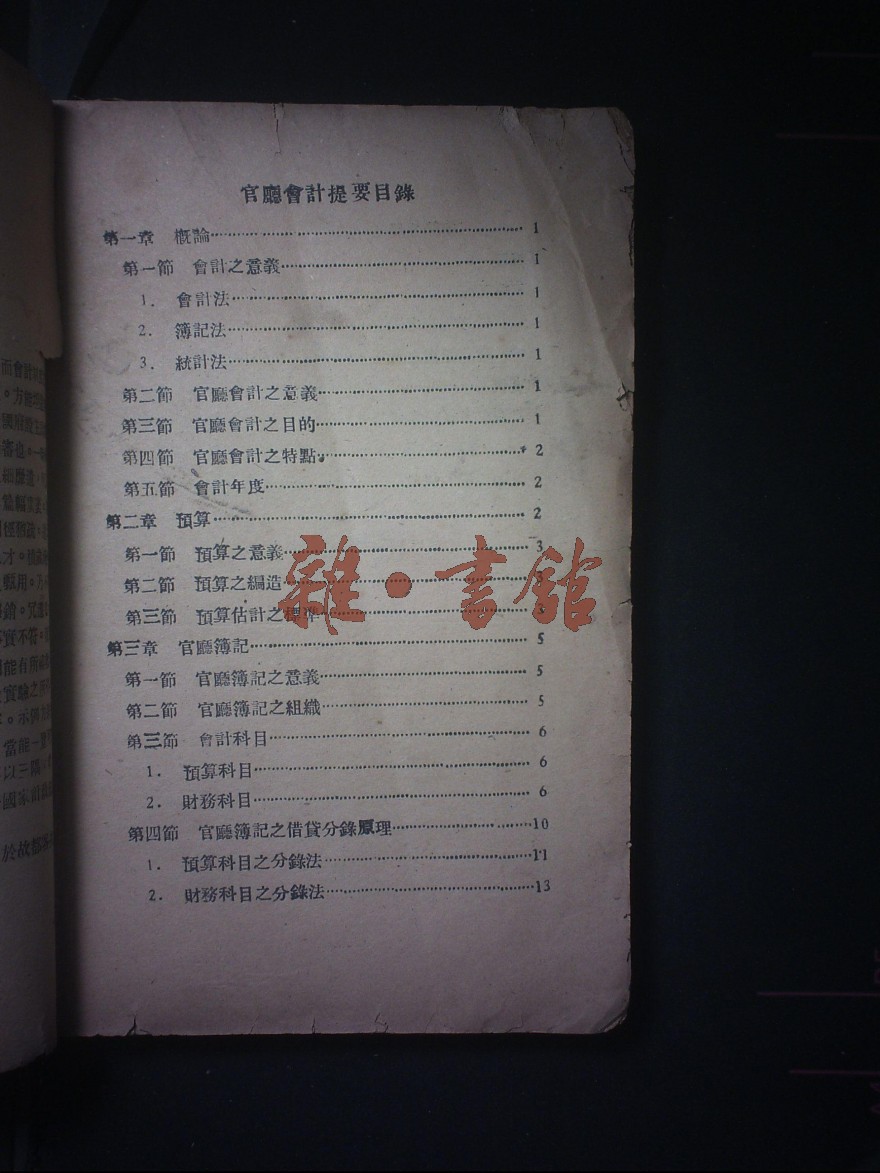 官廳會計提要目錄
第一章 概論……1
第一節 會計之意義……1
1. 會計法……1
2. 簿記法……1
3. 統計法……1
第二節 官廳會計之意義……1
第三節 官廳會計之目的……1
第四節 官廳會計之特點……2
第五節 會計年度……2
第二章 預算……2
第一節 預算之意義……3
第二節 預算之編造……3
第三節 預算估計之標準……3
第三章 官廳簿記……5
第一節 官廳簿記之意義……5
第二節 官廳簿記之組織……5
第三節 會計科目……6
1. 預算科目……6
2. 財務科目……6
第四節 官廳簿記之借貸分錄原理……10
1. 預算科目之分錄法……11
2. 財務科目之分錄法……13
雜·書館